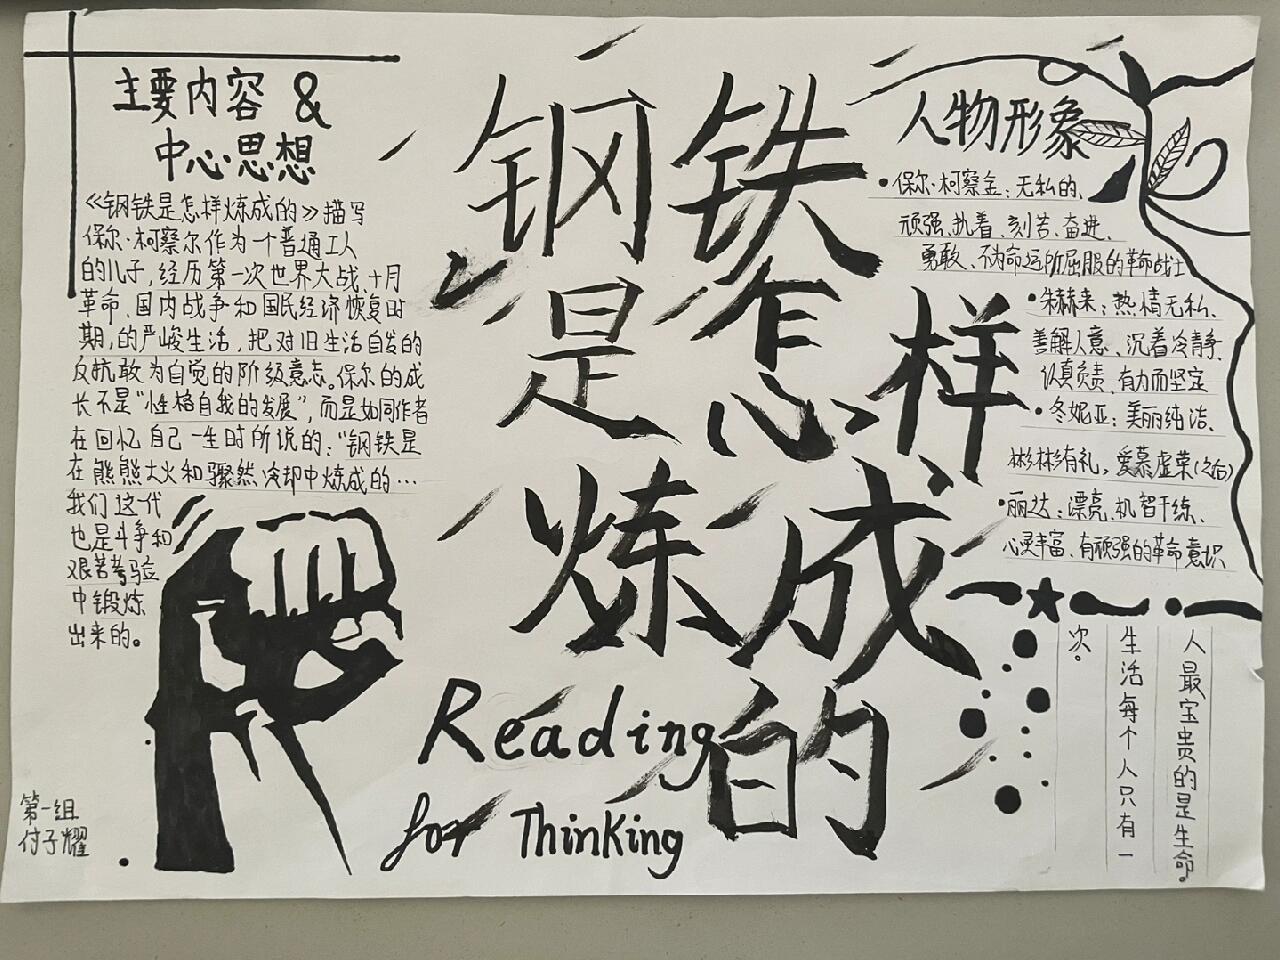 主要内容 &
中心思想
《钢铁是怎样炼成的》描写
保尔·柯察尔作为一个普通工人
的儿子，经历第一次世界大战、十月
革命、国内战争和国民经济恢复时
期，的严峻生活，把，对旧生活自发的
反抗敢为自觉的阶级意志。保尔的成
长不是“性格自我的发展”，而是如同作者
在回忆自己一生时所说的：“钢铁是
在熊熊大火和骤然冷却中炼成的…
我们这一代
也是斗争和
艰苦考验
中锻炼
出来的。
第一组
付子耀
钢铁
是怎样
炼成
的
Reading
for Thinking
人物形象
•保尔·柯察金：无私的、
顽强、执着、刻苦、奋进、
勇敢、不为命运所屈服的革命战士
•朱赫来：热情无私、
善解人意、沉着冷静、
认真负责、有力而坚定
•冬妮亚：美丽纯洁、
彬彬有礼，爱慕虚荣(之后)
•丽达：漂亮、机智干练、
心灵丰富、有顽强的革命意识
人最宝贵的是生命。
生活每个人只有一
次。